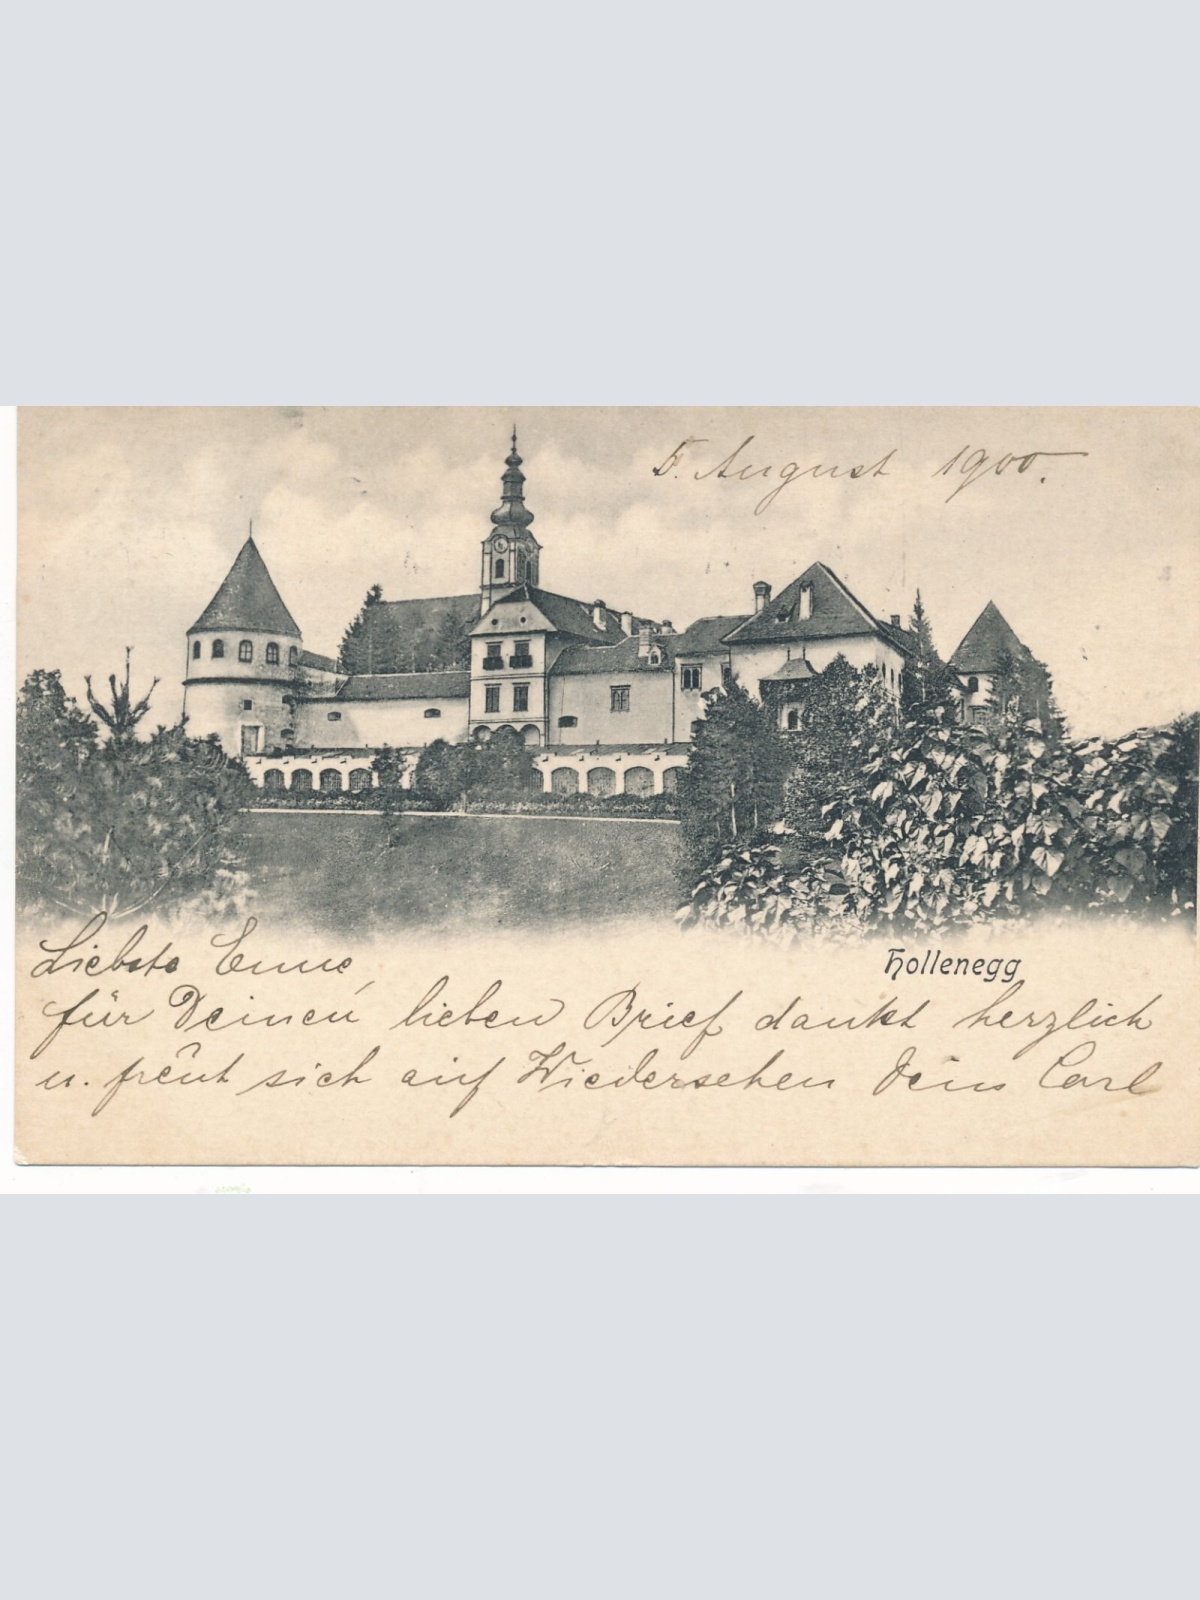 5. August 1900.
Liebste Emme,
Hollenegg
für Deinen lieben Brief dankt herzlich
u. freut sich auf Wiedersehen Dein Carl